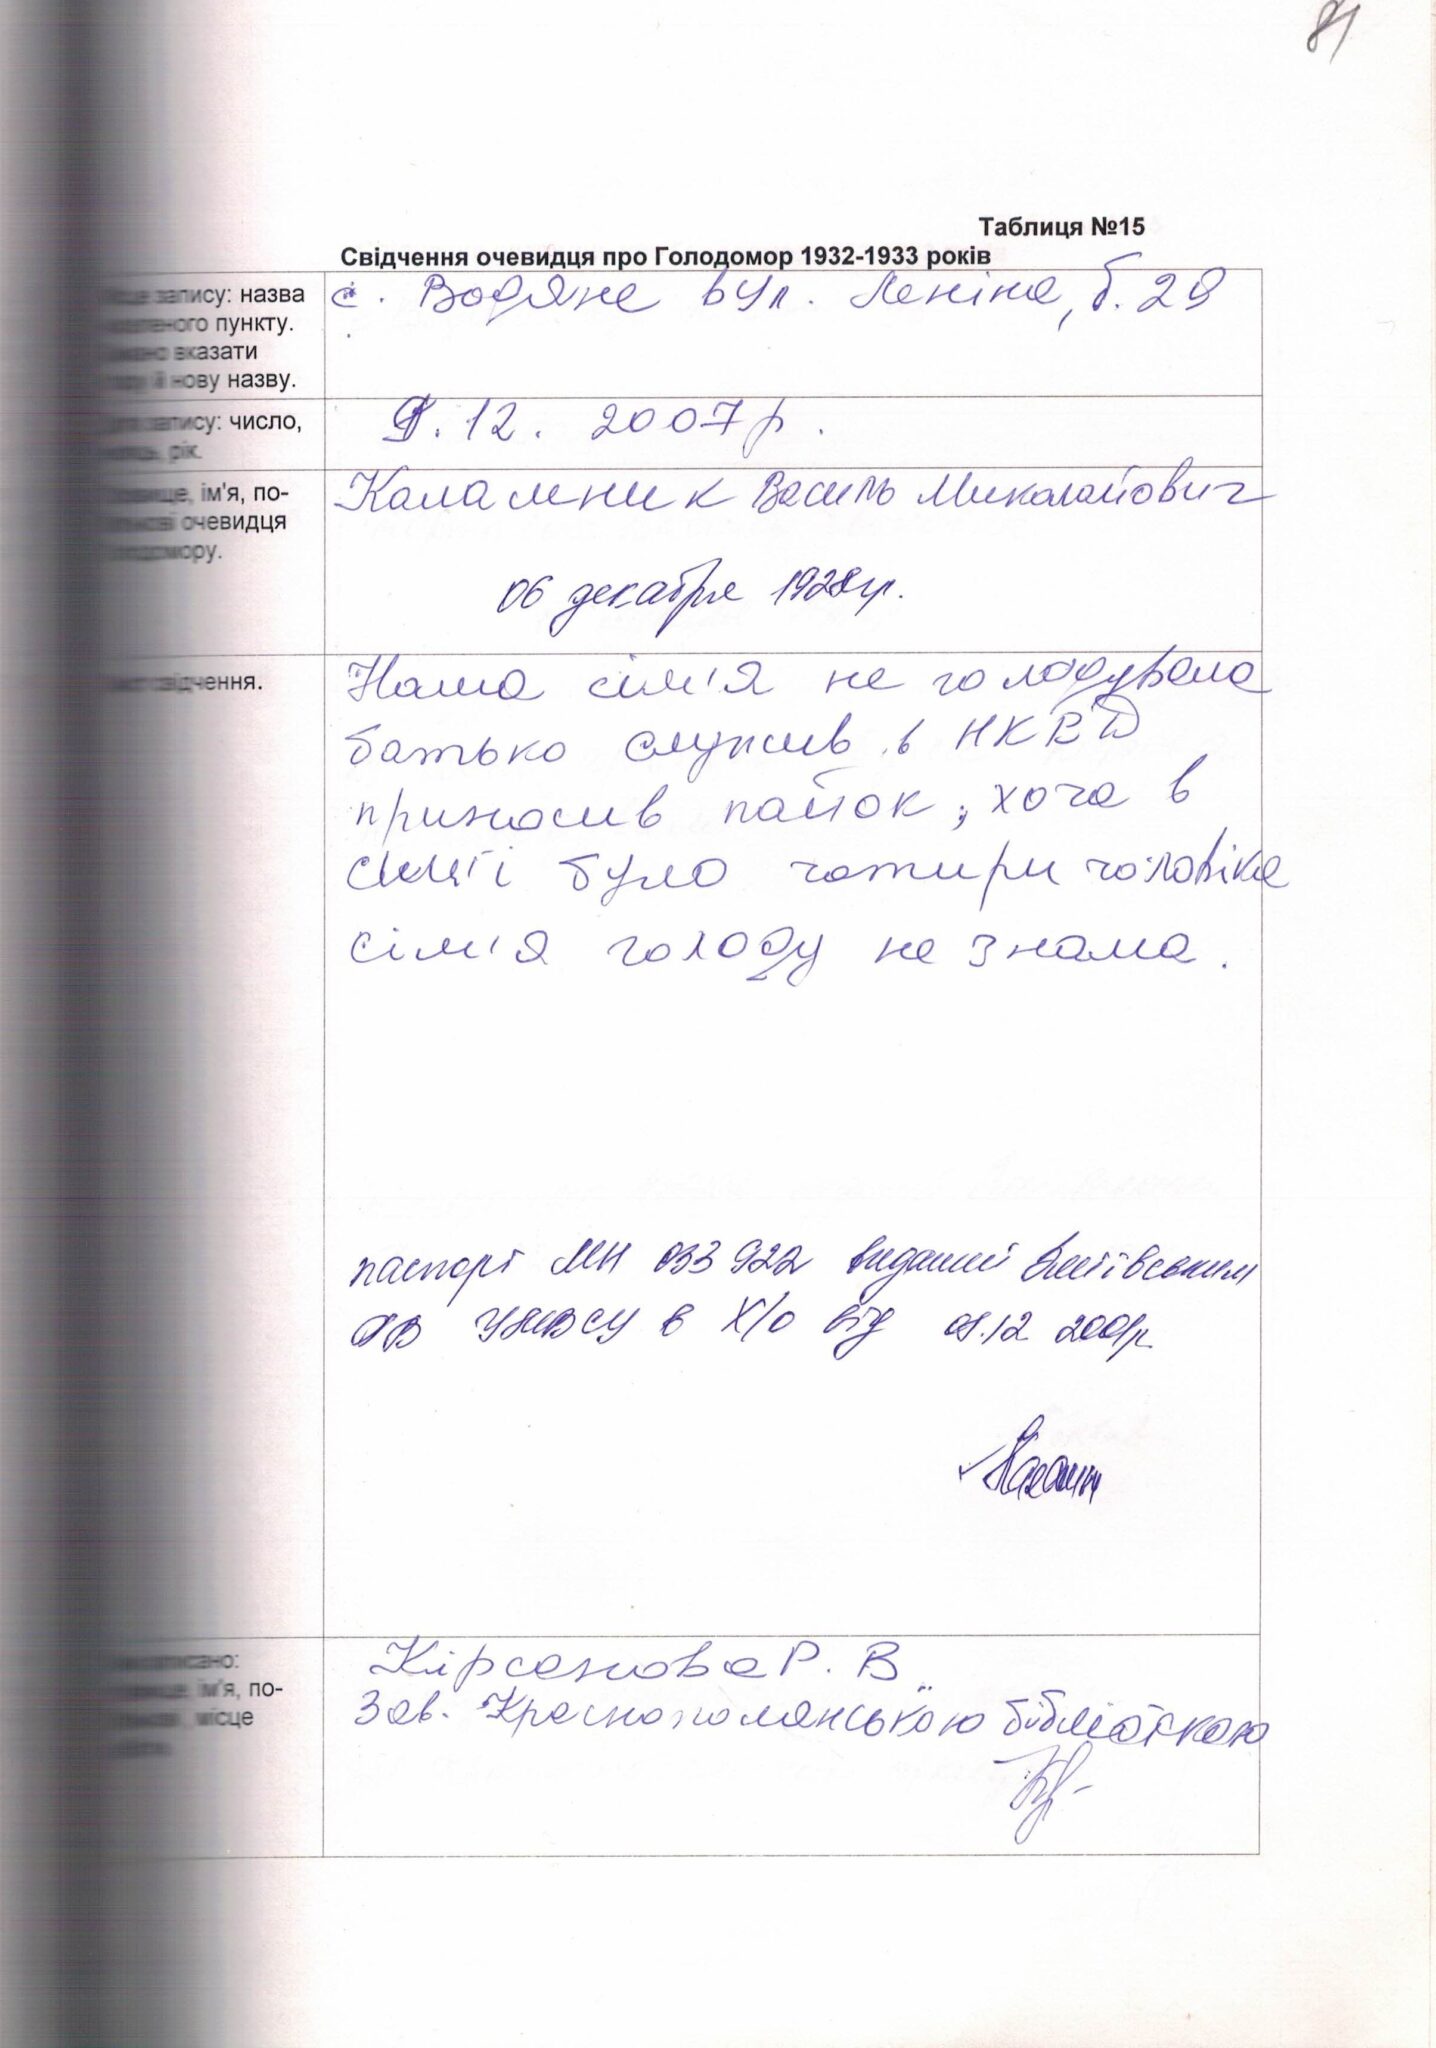 81
Таблиця №15
Свідчення очевидця про Голодомор 1932-1933 років
запису: назва
пункту.
вказати
й нову назву.
с. Водяне вул. Леніна, б. 29
запису: число,
рік.
.12. 2007р.
ім'я, по-
очевидця
Голодомору.
Каламник Василь Миколайович
06 декабря 1928 гр.
свідчення.
Наша сім'я не голодувала
батько служив в НКВД
приносив пайок, хоча в
сим'ї було чотири чоловіка
сім'я голоду не знала.
паспорт МН 033922 виданий Зміївським
РВ УМВСУ в Х/о від 08.12 2001р.
Записано:
ім'я, по-
місце
Кірсанова Р. В
Зав. Краснополянською бібліотекою